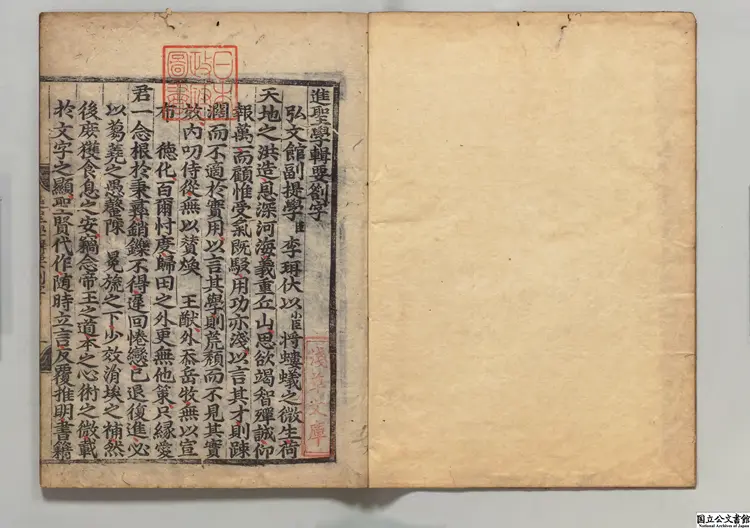 進聖學輯要劄字
弘文館副提學臣李珥伏以小臣將螻蟻之微生荷
天地之洪造恩深河海義重丘山思欲竭智殫誠仰
報萬一而顧惟受氣既駁用功亦淺以言其才則踈
濶而不適於實用以言其學則荒頹而不見其實
效内叨侍從無以贊煥 王猷外忝岳牧無以宣
布 德化百爾忖度歸田之外更無他策只緣愛
君一念根於秉彝銷鑠不得遲回惓戀已退復進必
以蒭蕘之愚罄陳 冕旒之下少效涓埃之補然
後庶獲食息之安竊念帝王之道本之心術之微載
於文字之顯聖賢代作随時立言反覆推明書籍
日本
政府
圖書
淺草文庫
国立公文書館
National Archives of Japan